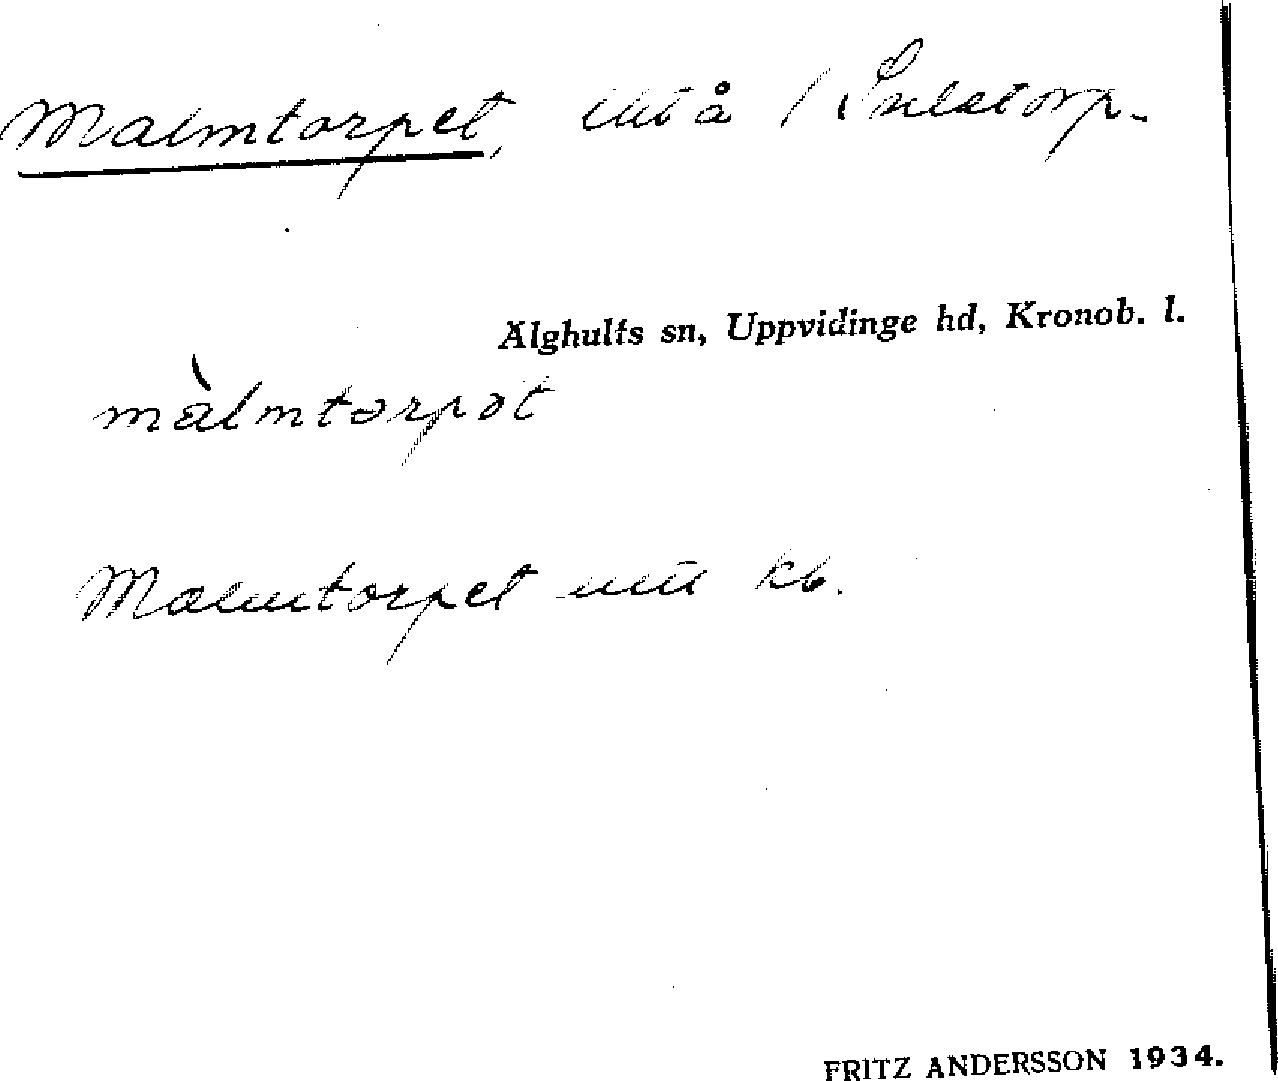 Malmtorpet, utä /
Älghults sn, Uppvidinge hd, Kronob. l.
màlmtorpət
Malmtorpet uti kb.
FRITZ ANDERSSON 1934.